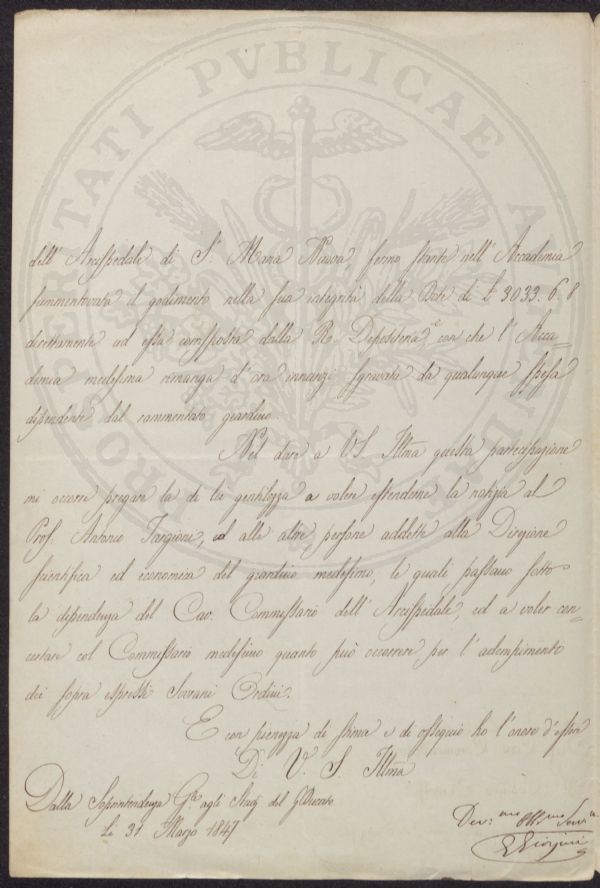 dell' Arcispedale di S. Maria Nuova, fermo stante nell' Accademia
summentovata il godimento nella sua integrità della Dote di £ 3033. 6. 8
direttamente ad essa corrisposta dalla R. Depositeria, e con che l' Acca-
demia medesima rimanga d' ora innanzi sgravata da qualunque spesa
dipendente dal rammentato giardino.
Nel dare a VS. Illma questa partecipazione
mi occorre pregare la di lei gentilezza a volere estenderne la notizia al
Prof. Antonio Targioni, ed alle altre persone addette alla Direzione
scientifica ed economica del giardino medesimo, le quali passano sotto
la dipendenza del Cav. Commissario dell' Arcispedale, ed a voler con-
certare col Commissario medesimo quanto può occorrere per l' adempimento
dei sopra espressi Sovrani Ordini.
E con pienezza di stima e di ossequio ho l' onore d' essere
Di V. S. Illma
Dalla Soprintendenza Gle agli Studj del GDucato
Li 31 Marzo 1847
Dev:mo Obb.mo Serv.e
G Giorgini
PRO VBERTATI PVBLICAE